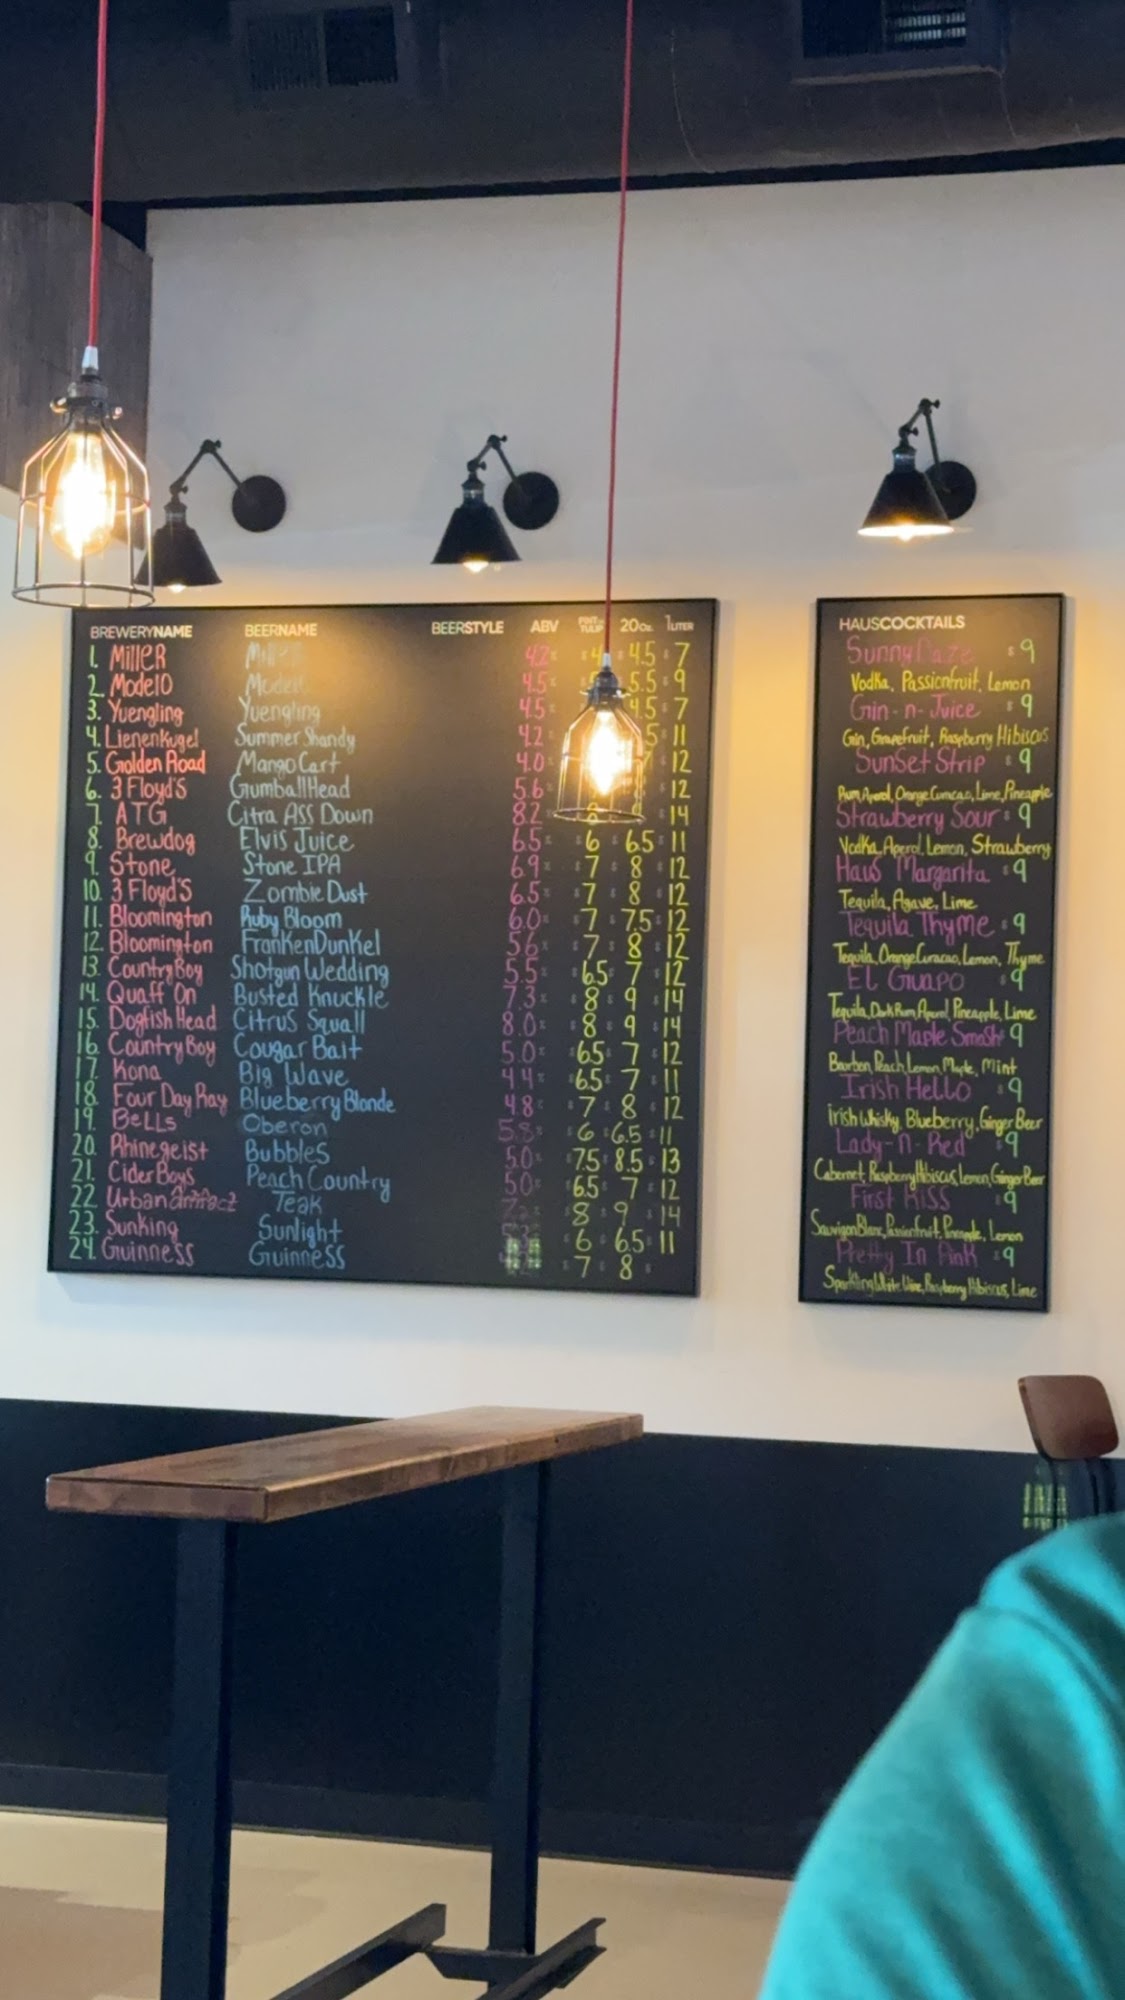 BREWERYNAME BEERNAME BEERSTYLE ABV PINT TULIP 20Oz. 1LITER
1. Miller Miller 4.2% $4 $4.5 $7
2. Modelo Modelo 4.5% 5.5 $9
3. Yuengling Yuengling 4.5% 4.5 $7
4. Lienenkugel Summer Shandy 4.2 11
5. Golden Road Mango Cart 4.0 12
6. 3 Floyd's GumballHead 5.6 12
7. ATG Citra Ass Down 8.2 14
8. Brewdog Elvis Juice 6.5% $6 $6.5 $11
9. Stone Stone IPA 6.9% $7 $8 $12
10. 3 Floyd's Zombie Dust 6.5% $7 $8 $12
11. Bloomington Ruby Bloom 6.0% $7 $7.5 $12
12. Bloomington FrankenDunkel 5.6% $7 $8 $12
13. Country Boy Shotgun Wedding 5.5% $6.5 $7 $12
14. Quaff On Busted Knuckle 7.3% $8 $9 $14
15. Dogfish Head Citrus Squall 8.0% $8 $9 $14
16. Country Boy Cougar Bait 5.0% $6.5 $7 $12
17. Kona Big Wave 4.4% $6.5 $7 $11
18. Four Day Ray Blueberry Blonde 4.8% $7 $8 $12
19. Bells Oberon 5.8% $6 $6.5 $11
20. Rhinegeist Bubbles 5.0% $7.5 $8.5 $13
21. CiderBoys Peach Country 5.0% $6.5 $7 $12
22. Urban artifact Teak $8 $9 $14
23. Sunking Sunlight $6 $6.5 $11
24. Guinness Guinness $7 $8 $
HAUSCOCKTAILS
Sunny Daze $9
Vodka, Passionfruit, Lemon
Gin-n-Juice $9
Gin, Grapefruit, Raspberry Hibiscus
SunSet Strip $9
Rum, Aperol, Orange Curacao, Lime, Pineapple
Strawberry Sour $9
Vodka, Aperol, Lemon, Strawberry
Haus Margarita $9
Tequila, Agave, Lime
Tequila Thyme $9
Tequila, Orange Curacao, Lemon, Thyme
El Guapo $9
Tequila, Dark Rum, Aperol, Pineapple, Lime
Peach Maple Smash $9
Bourbon, Peach, Lemon, Maple, Mint
Irish Hello $9
Irish Whisky, Blueberry, Ginger Beer
Lady-n-Red $9
Cabernet, Raspberry Hibiscus, Lemon, Ginger Beer
First Kiss $9
Sauvignon Blanc, Passionfruit, Pineapple, Lemon
Pretty In Pink $9
Sparkling White Wine, Raspberry Hibiscus, Lime